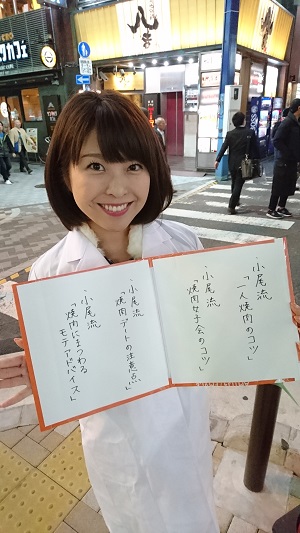 ・小尾流
「一人焼肉のコツ」
・小尾流
「焼肉女子会のコツ」
・小尾流
「焼肉デートの注意点」
・小尾流
「焼肉にまつわる
モテアドバイス」
カフェ